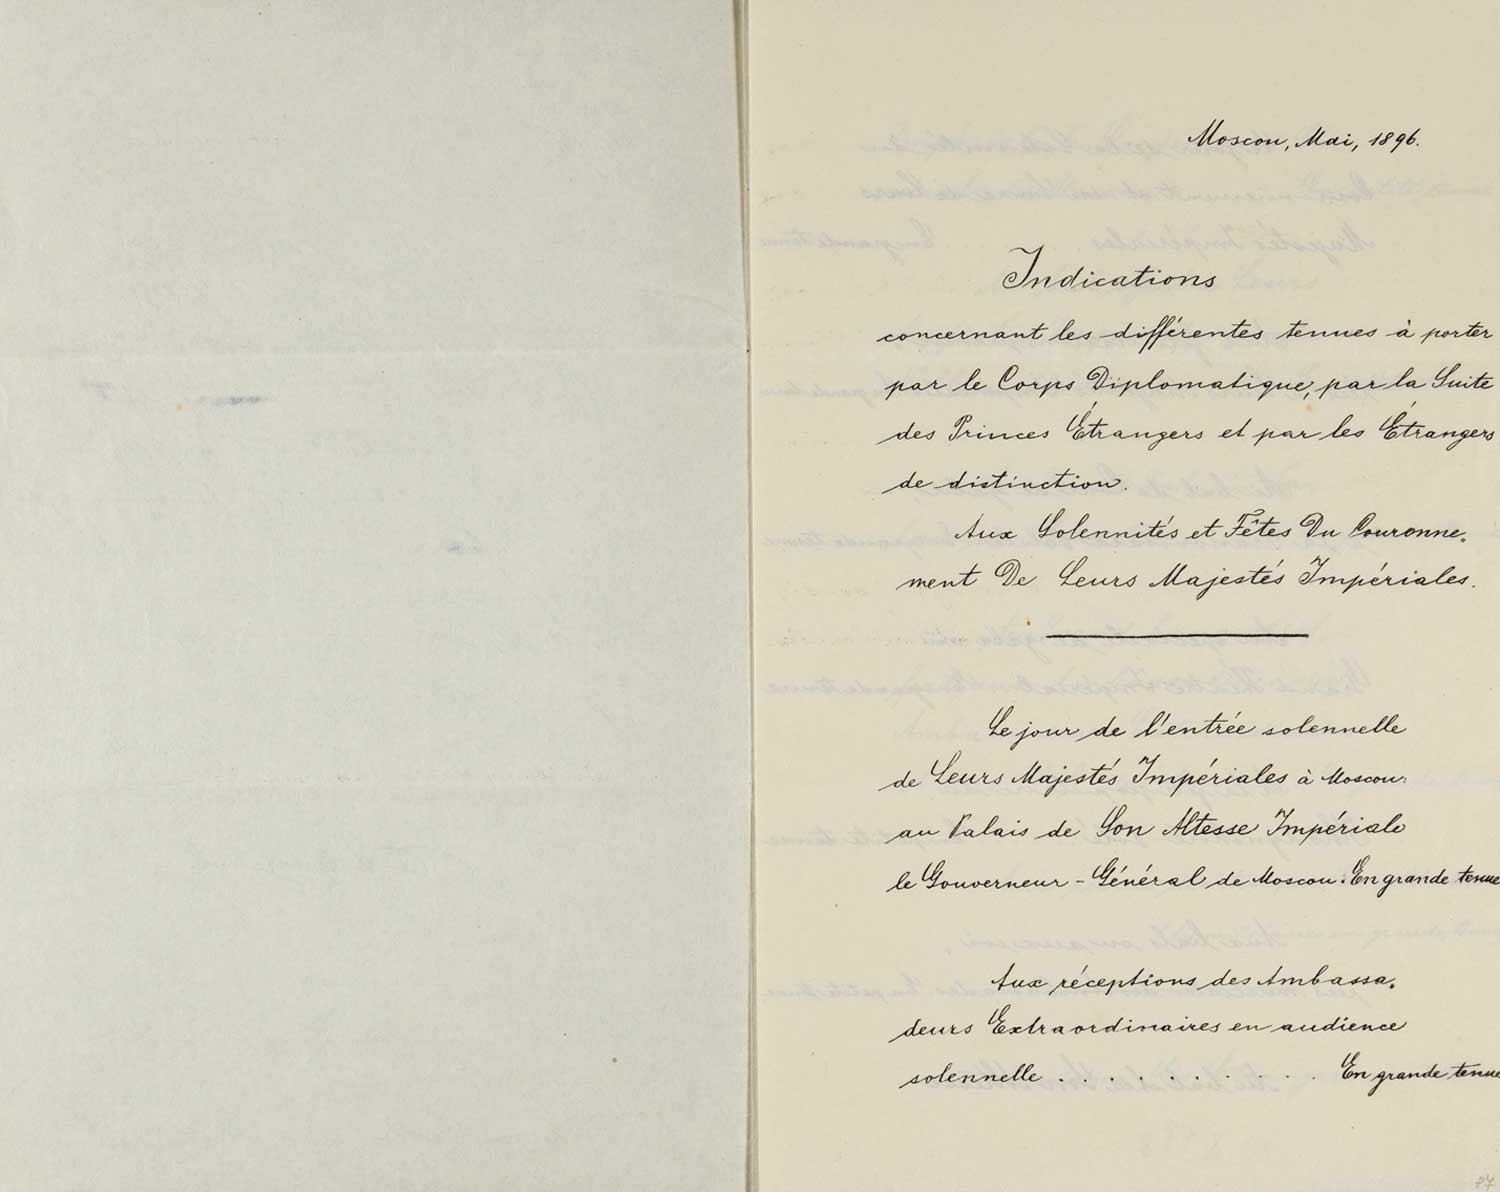 Moscou, Mai, 1896.
Indications
concernant les différentes tenues à porter
par le Corps Diplomatique, par la Suite
des Princes Étrangers et par les Étrangers
de distinction.
Aux Solennités et Fêtes Du Couronne-
ment De Leurs Majestés Impériales.
Le jour de l'entrée solennelle
de Leurs Majestés Impériales à Moscou:
au Palais de Son Altesse Impériale
le Gouverneur-Général de Moscou. En grande tenue
Aux réceptions des Ambassa-
deurs Extraordinaires en audience
solennelle . . . . . . . . . . En grande tenue